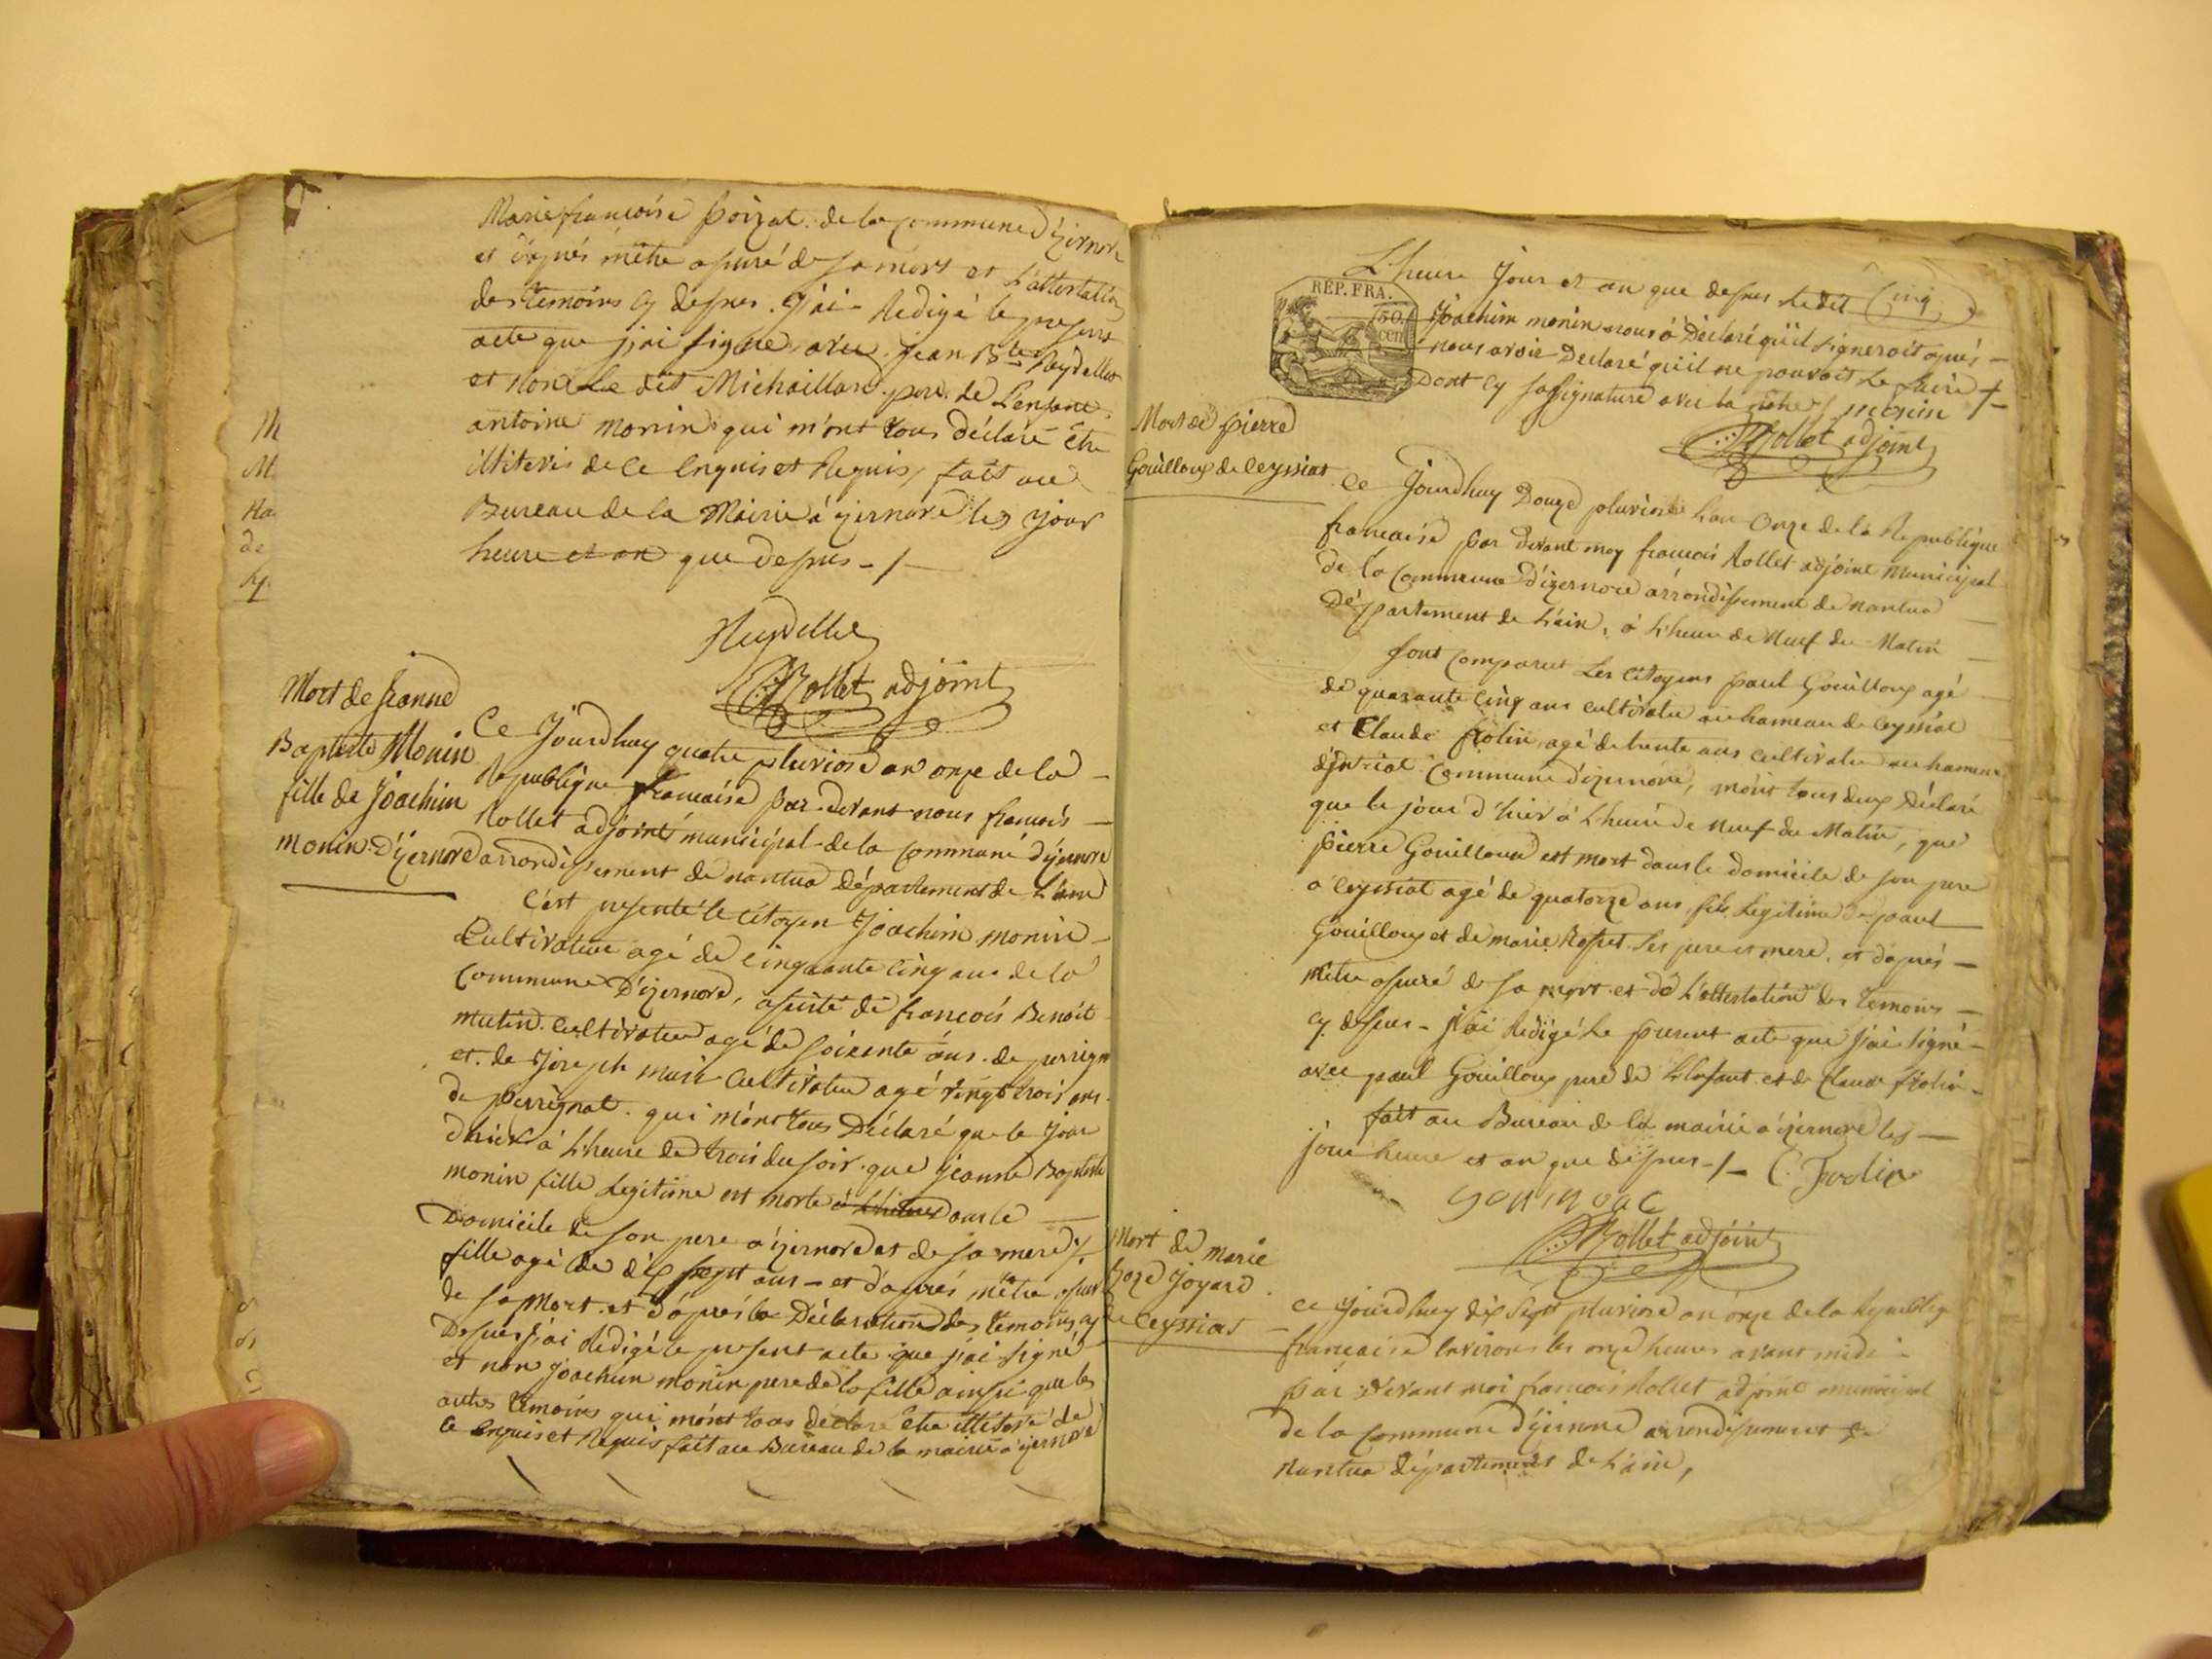 Marie francoise poizat de la Commune d'izernore
et d'après m'être assuré de sa mort et L'attestation
des temoins cy dessus. j'ai Redigé le present
acte que j'ai signé avec Jean Bte Reydellet
et non Le dit Michaillard pere de L'enfant
antoine monin qui m'ont tous déclaré être
illiteris de ce Enquis et Requis, fait au
Bureau de la Mairie à izernore les jour
heure et an que dessus -/-
Reydellet
Rollet adjoint
Mort de Jeanne
Baptiste Monin
fille de Joachim
monin D'izernore
Ce Jourdhuy quatre pluviose an onze de la
Republique francaise par devant nous francois
Rollet adjoint municipal de la Commune d'izernore
arrondissement de nantua département de L'ain
C'est presenté le Citoyen Joachim monin
Cultivateur agé de cinquante cinq ans de la
Commune D'izernore, assisté de francois Benoit
cultivateur agé de soixante ans de
et de Joseph Cultivateur agé vingt trois ans
de perrignat qui m'ont tous Déclaré que le jour
d'hier à L'heure de trois du soir que jeanne Baptiste
monin fille Legitime est morte dans le
Domicile de son pere à izernore et de sa mere
fille agé de dix sept ans - et d'après m'être assuré
de sa mort et d'après la Déclaration des temoins cy
Dessus j'ai Redigé le present acte que j'ai signé
et non Joachim monin pere de la fille ainsi que les
autres temoins qui m'ont tous déclaré être illiteré de
ce enquis et Requis fait au Bureau de la mairie a izernore
L'heure jour et an que dessus Le dit
RÉP. FRA.
50.
cen
Joachim monin nous à Déclaré qu'il signeroit après
nous avoir Declaré qu'il ne pouvoit Le faire
Dont cy sa signature avec la notre / monin
Rollet adjoint
Mort de pierre
Gouilloux de Ceyssiat
Ce Jourdhuy Douze pluviose L'an Onze de la Republique
francaise par devant moy francois Rollet adjoint Municipal
de la Commune d'izernore arrondissement de nantua
Département de L'ain, à L'heure de Neuf du Matin
sont Comparus Les Citoyens paul Gouilloux agé
de quarante cinq ans cultivateur au hameau de Ceyssiat
et Claude agé de trente ans cultivateur au hameau
Commune d'izernore, m'ont tous deux Déclaré
que le jour d'hier à L'heure de Neuf du Matin, que
pierre Gouilloux est mort dans le domicile de son pere
a Ceyssiat agé de quatorze ans, fils Legitime de paul
Gouilloux et de marie ses pere et mere, et d'après
m'être assuré de sa mort et de L'attestation des temoins
cy dessus - j'ai Redigé Le present acte que j'ai signé
avec paul Gouilloux pere de L'Enfant et de Claude
fait au Bureau de la mairie a izernore les
jour heure et an que dessus -/-
Rollet adjoint
Mort de marie
Joyard
de Ceyssiat
Ce Jourdhuy dix sept pluviose an onze de la Republique
francaise Environs les onze heures avant midi
par devant moi francois Rollet adjoint municipal
de la Commune d'izernore arrondissement de
Nantua département de L'ain,